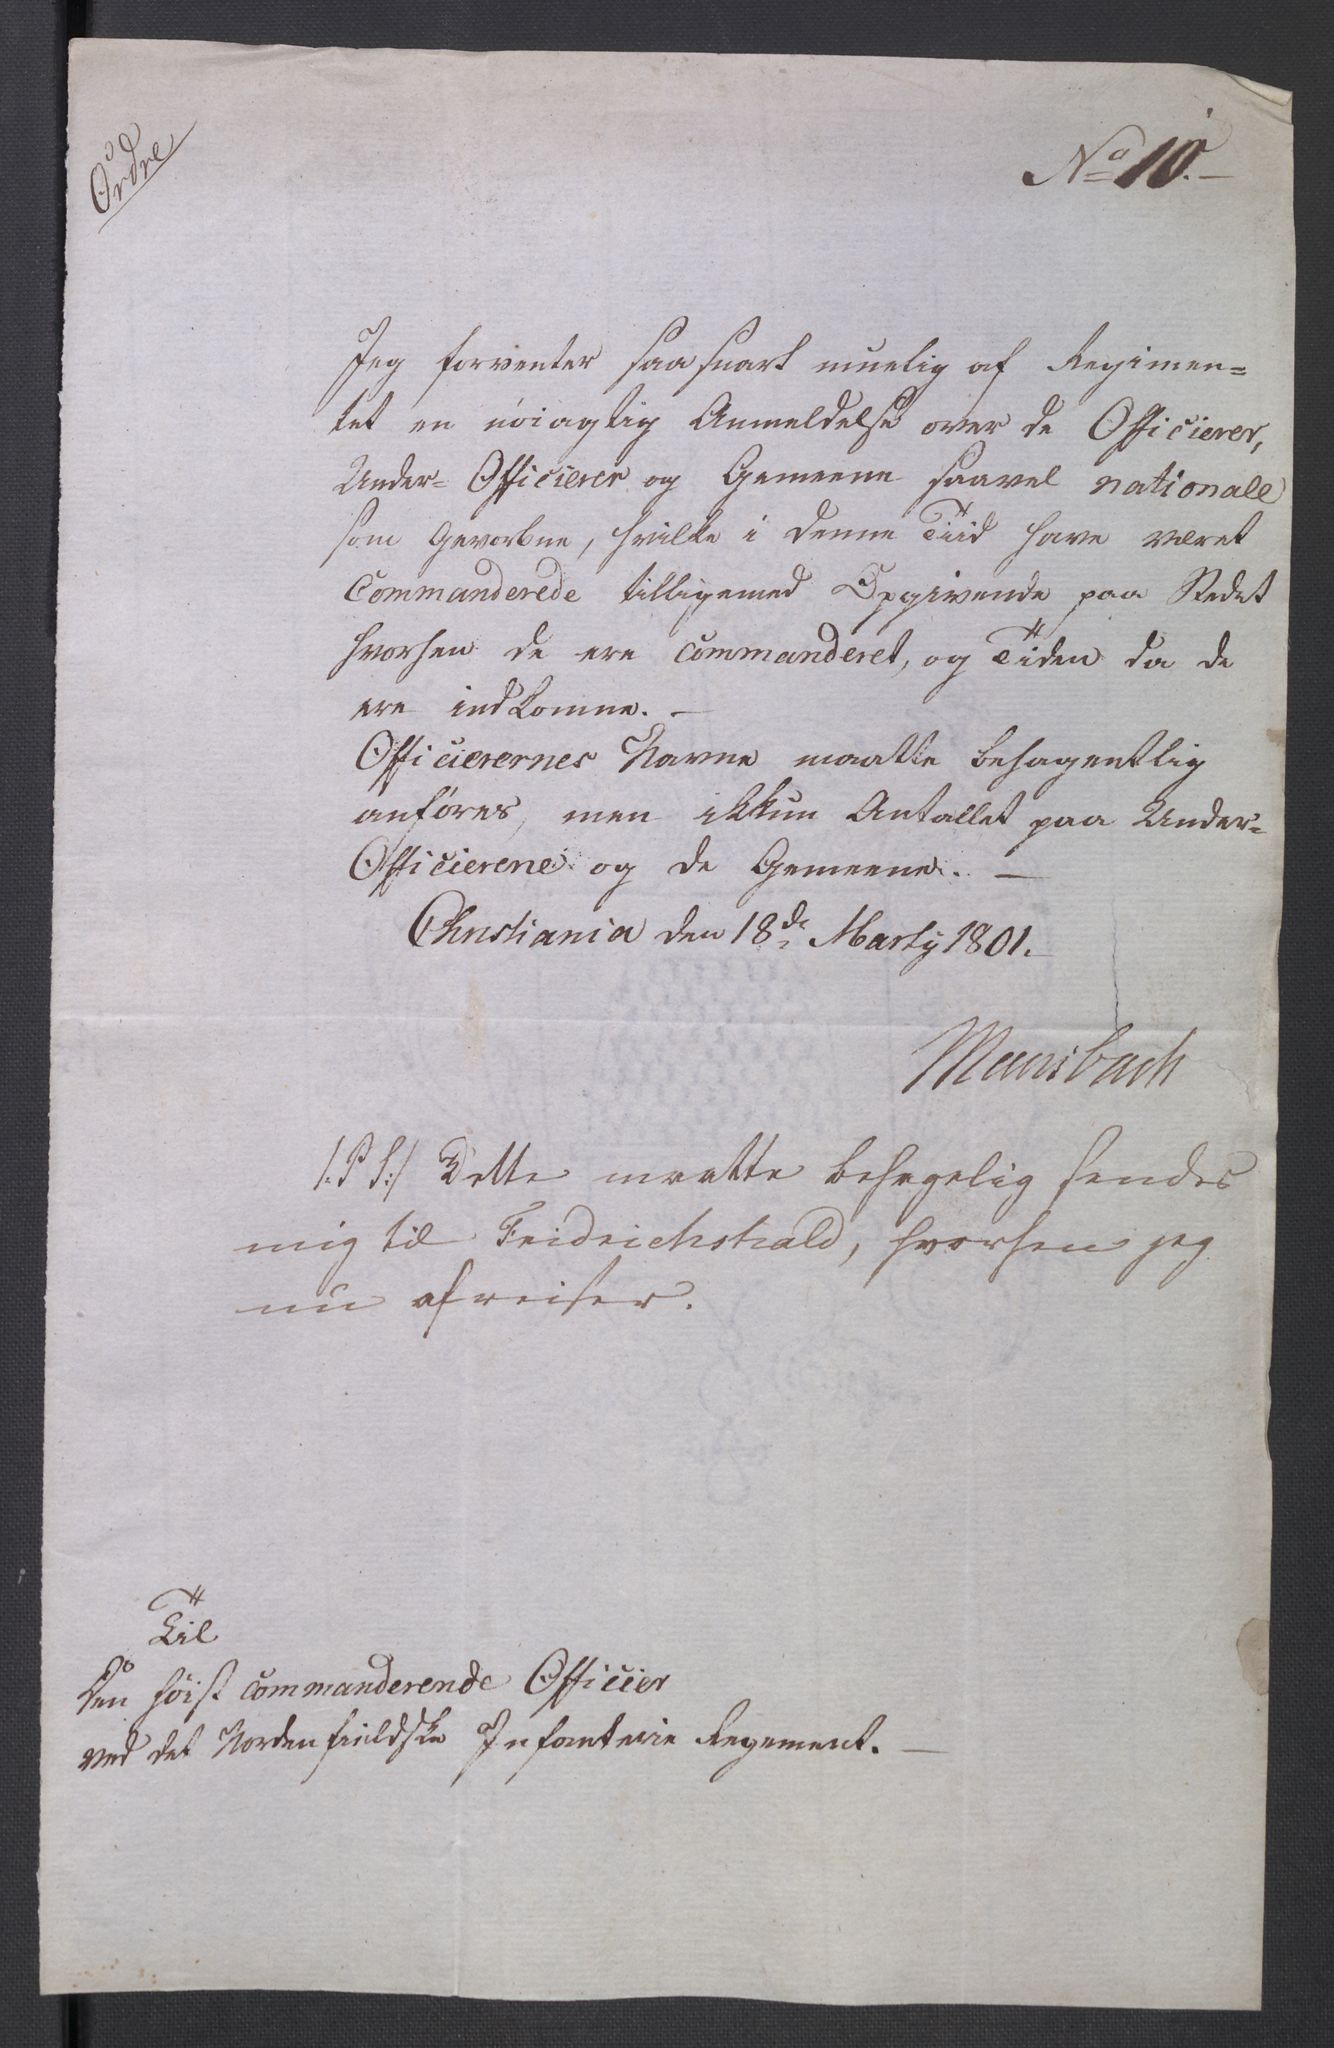 Ordre
No 10.
Jeg forventer saa snart muelig af Regimen=
tet en nöiagtig Anmeldelse over de Officierer,
Under= Officierer og Gemeene saavel nationale
som Gevorbne, hvilke i denne Tiid have været
Commanderede tilligemed Opgivende paa Stedet
hvorhen de ere commanderet, og Tiden da de
ere indkomne. —
Officierernes Navne maatte behagentlig
anföres, men ikkun Antallet paa Under=
Officierene og de Gemeene. —
Christiania den 18de Martÿ 1801.
Mansbach
/: P S :/ Dette maatte behagelig sendes
mig til Fridrichshald, hvorhen jeg
nu afreiser.
Til
Den höist commanderende Officier
ved det Nordenfieldske Infanterie Regement. —